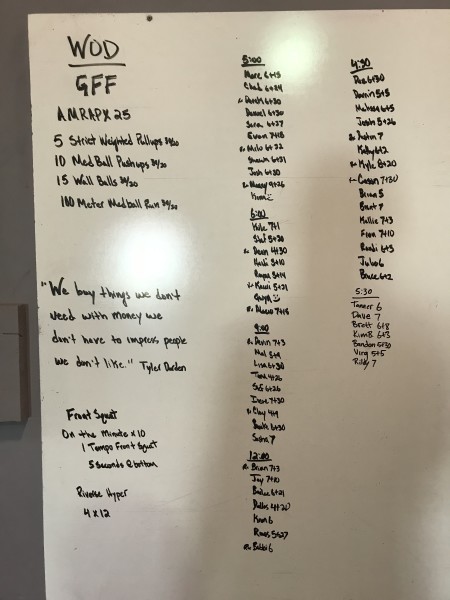 WOD
GFF
AMRAP X 25
5 Strict Weighted Pullups
10 Med Ball Pushups 30/20
15 Wall Balls 30/20
100 Meter Medball Run 30/20
"We buy things we don't
need with money we
don't have to impress people
we don't like." Tyler Durden
Front Squat
On the Minute x 10
1 Tempo Front Squat
5 seconds @ bottom
Riverse Hyper
4 x 12
5:00
Marc 6+15
Chad 6+24
Derek 6+30
Daniel 6+30
Sara 6+27
Evan 7+18
Milo 6+32
Shawn 6+31
Josh 6+30
Manny 9+26
6:00
Kyle 7+1
Stef 5+20
Devin 4+30
Heidi 5+10
5+14
Kassi 5+21
Marco 7+15
9:00
Devin 7+3
Mal 5+9
Lisa 6+30
Tand 4+26
6+26
Dave 7+30
Clay 4+9
6+30
Sasha 7
12:00
Brian 7+3
Jay 7+10
6+21
Dallas 4+20
Knox 6
5+27
Bobbi 6
4:30
6+30
Darrin 5+5
Melissa 6+5
Josh 5+26
Dustin 7
Kathy 6+2
Kyle 8+20
Cason 7+30
Brian 5
Brent 7
Hallie 7+3
Fran 7+10
Randi 6+3
Jules 6
Bruce 6+2
5:30
Tanner 6
Dave 7
Brett 6+8
Kim B 6+3
Brandon 5+30
Ving 5+5
Riley 7